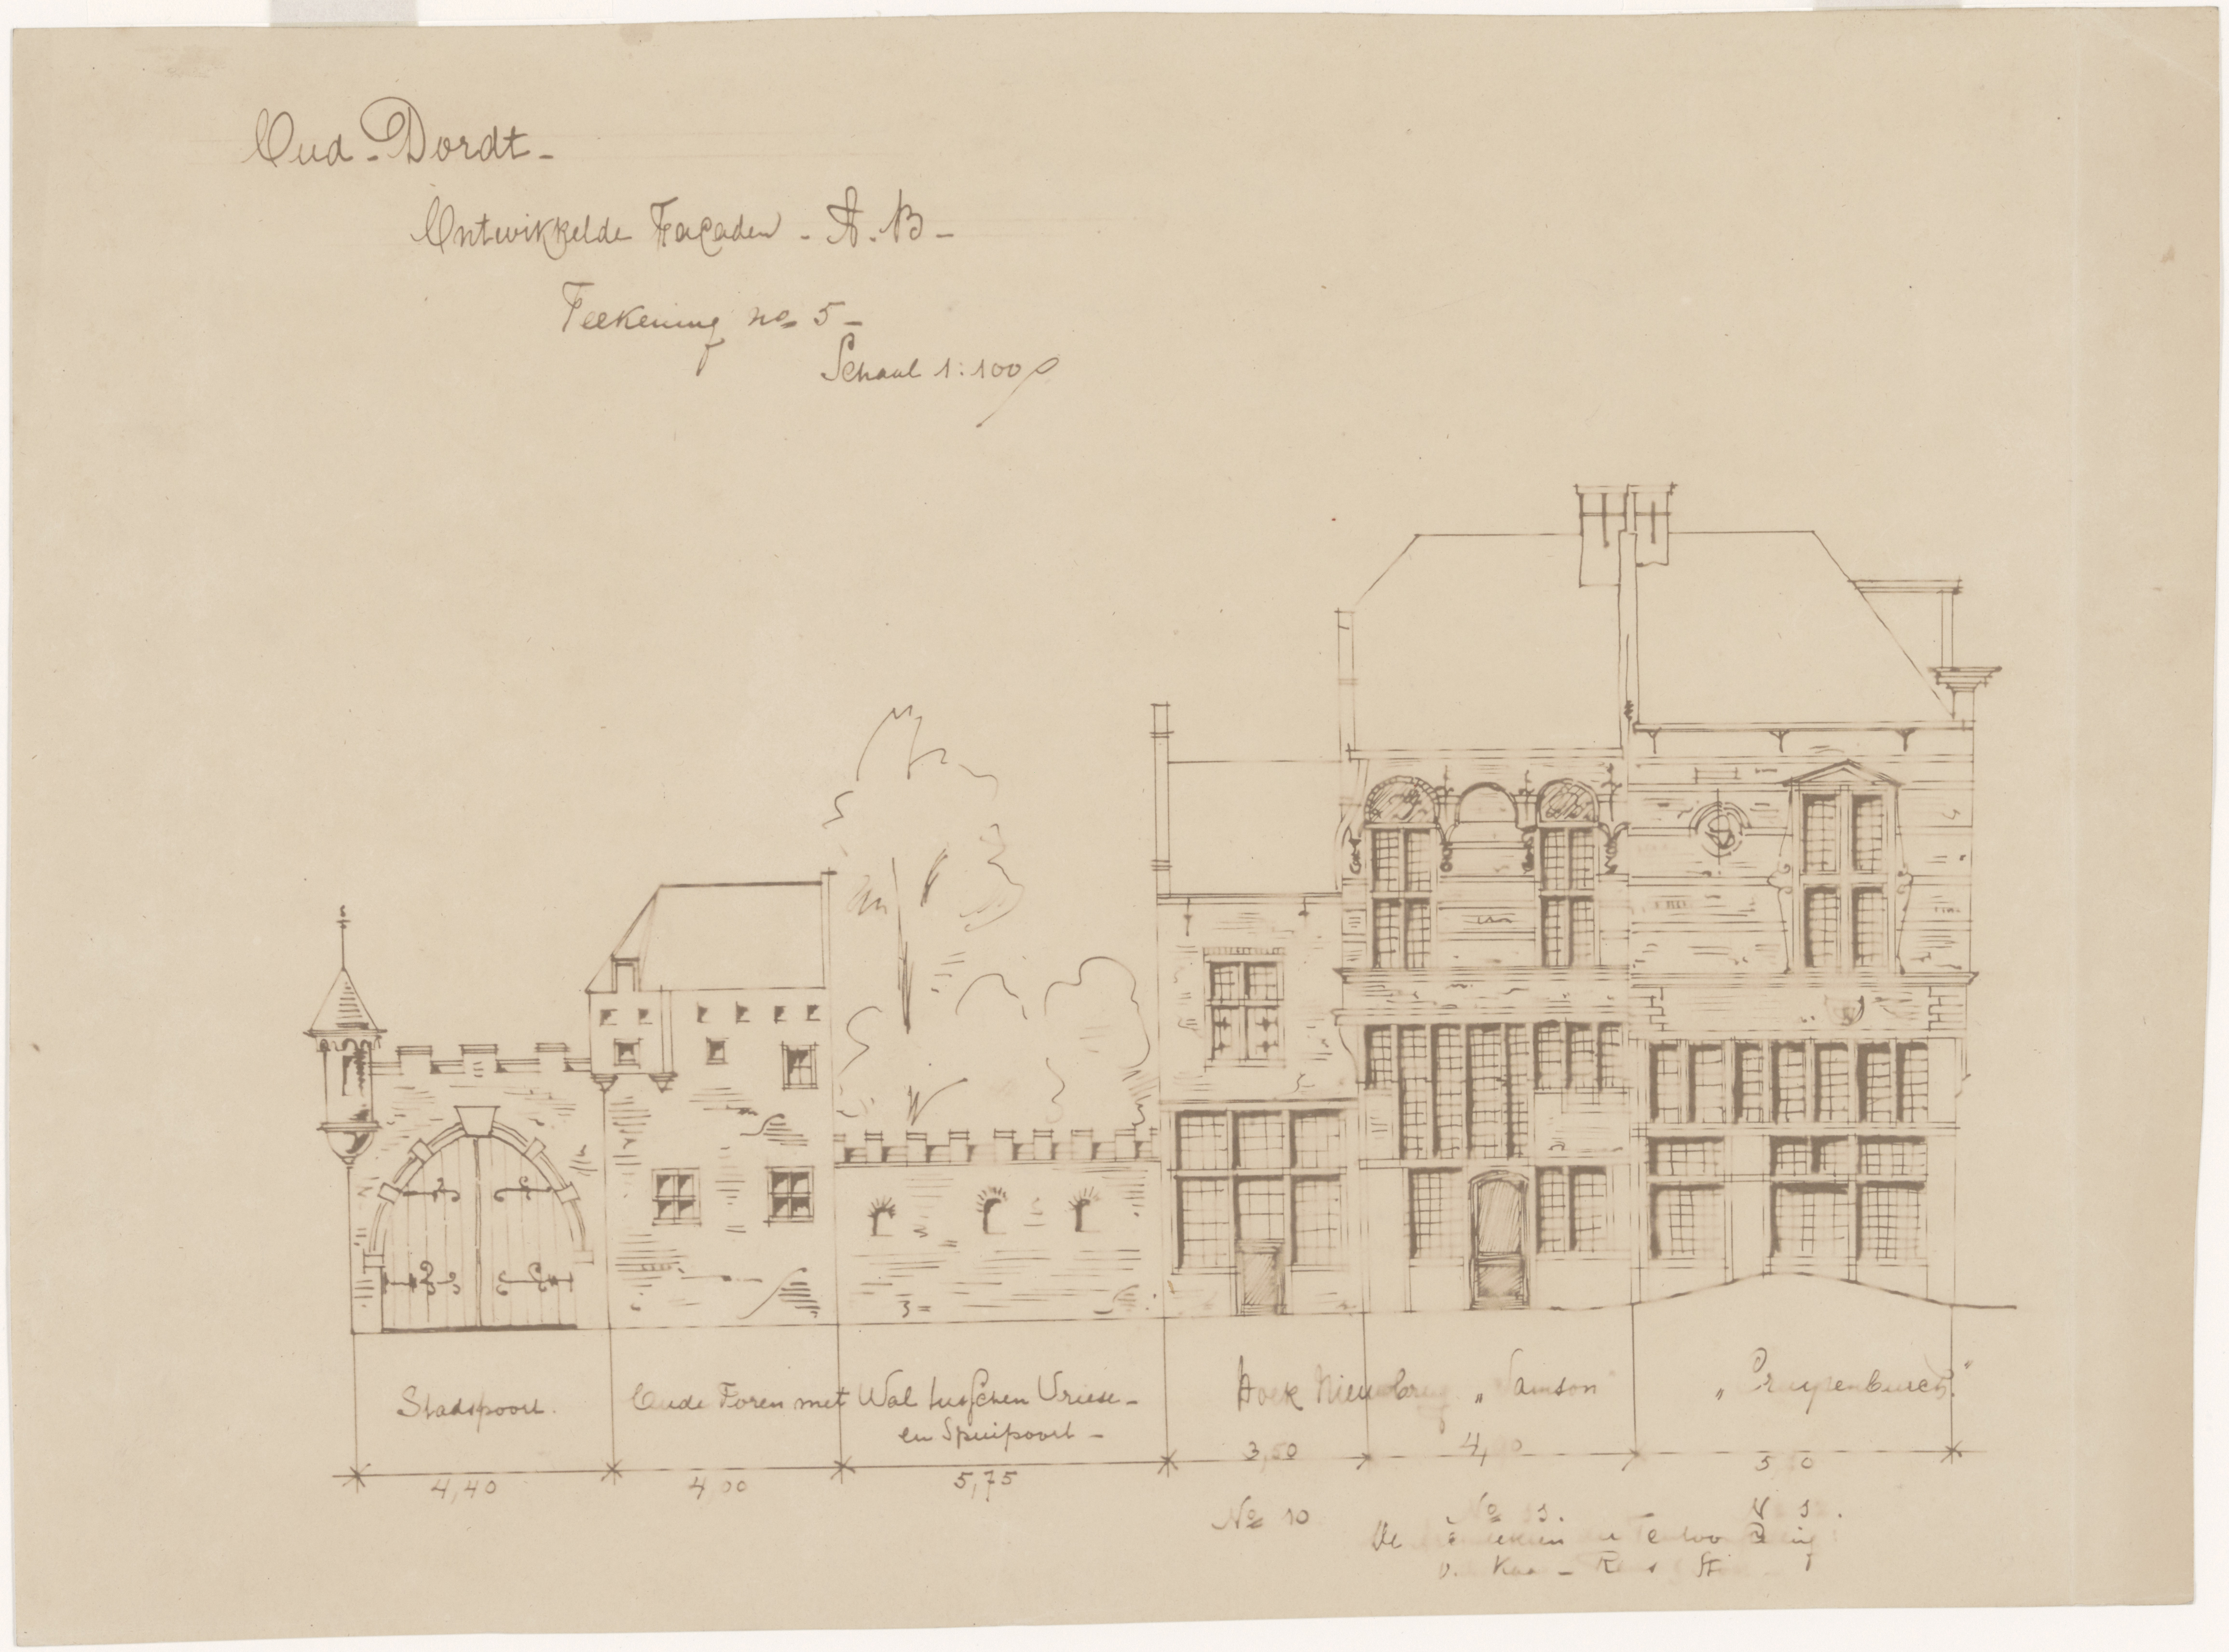 Oud-Dordt-
Ontwikkelde Façaden - A.B-
Teekening no 5-
Schaal 1:100
Stadspoort.
Oude Toren met Wal tusschen Vriese-
en Spuipoort-
Hoek Nieuwbrug
„Samson
„Cruysenburch."
4,40
4,00
5,75
3,50
4,
No 10
No
De